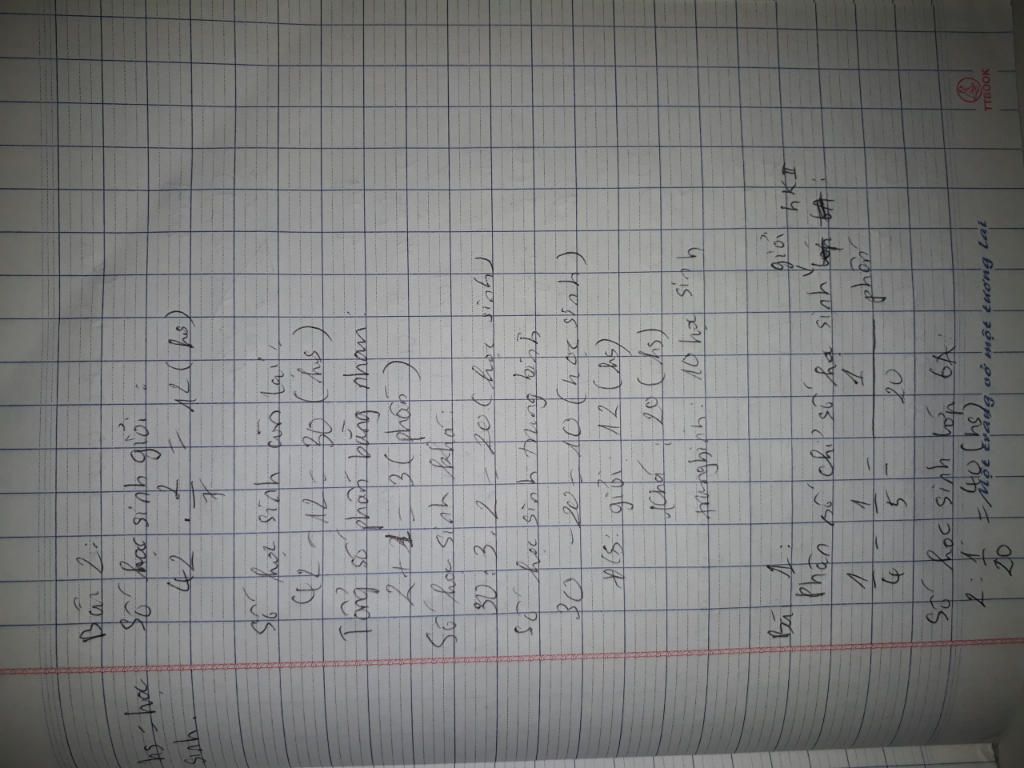 hs = học
sinh.
Bài 2:
Số học sinh giỏi:
42 . 2/7 = 12 (hs)
Số học sinh còn lại:
42 - 12 = 30 (hs)
Tổng số phần bằng nhau:
2 + 1 = 3 (phần)
Số học sinh khá:
30 : 3 . 2 = 20 (học sinh)
Số học sinh trung bình
30 - 20 = 10 (học sinh)
ĐS: giỏi: 12 (hs)
khá: 20 (hs)
trung bình: 10 học sinh
Bài 1:
Phân số chỉ số học sinh giỏi HKII:
1/4 - 1/5 = 1/20 phần
Số học sinh lớp 6A:
2 : 1/20 = 40 (hs)
Một trang vở một tương lai
TTBOOK